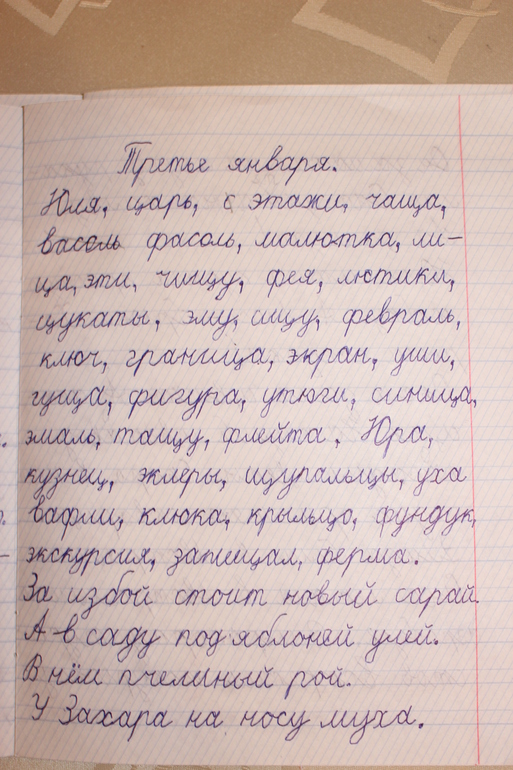 Третье января.
Юля, царь, с этажи, чаща,
васоль фасоль, малютка, ли-
ца, эти, чищу, фея, лютики,
цукаты, эму, ищу, февраль,
ключ, граница, экран, уши,
гуща, фигура, утюги, синица,
эмаль, тащу, флейта, Юра,
кузнец, эклеры, щупальцы, уха
вафли, клюка, крыльцо, фундук,
экскурсия, запищал, ферма.
За избой стоит новый сарай.
А в саду под яблоней улей.
В нём пчелиный рой.
У Захара на носу муха.